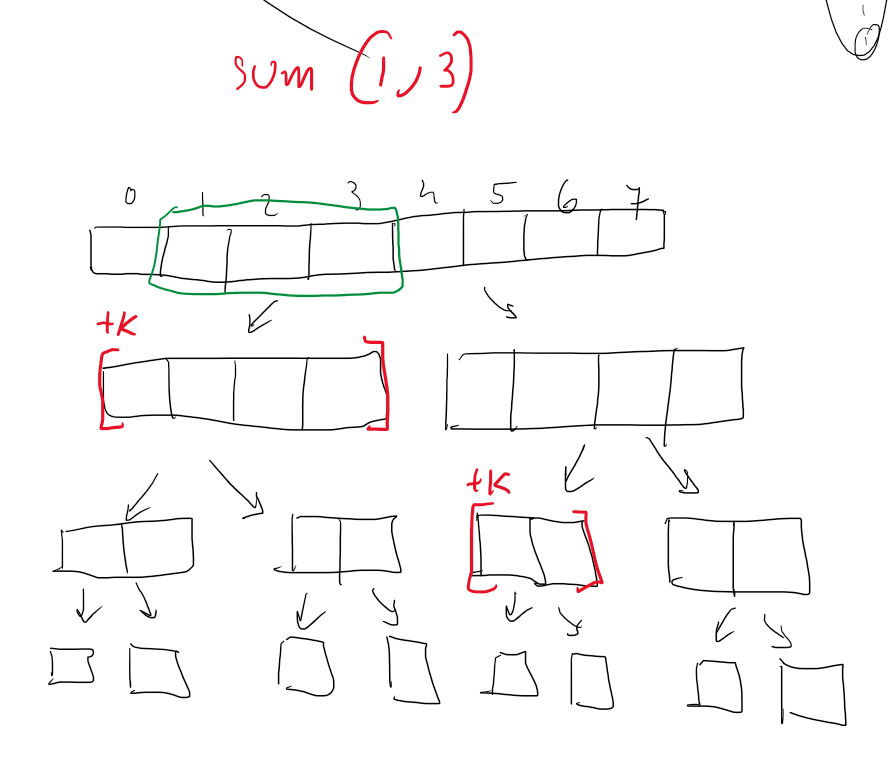 sum (1, 3)
0 1 2 3 4 5 6 7
+K
+K